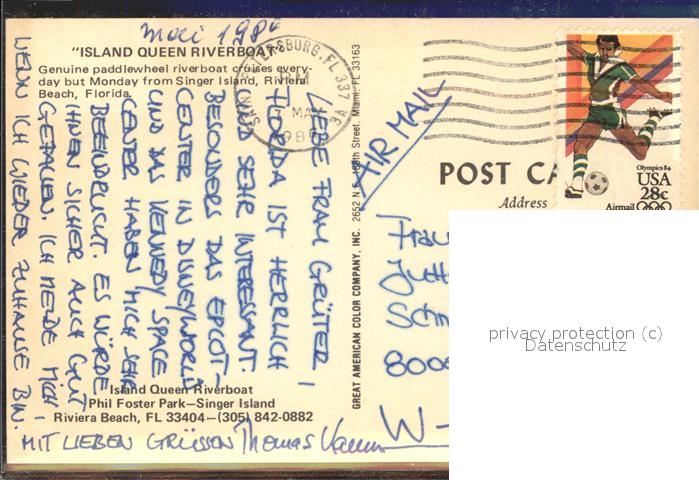 Mai 1986
"ISLAND QUEEN RIVERBOAT"
Genuine paddlewheel riverboat cruises every-
day but Monday from Singer Island, Riviera
Beach, Florida.
LIEBE FRAU GRÜTER!
FLORIDA IST HERRLICH
UND SEHR INTERESSANT.
BESONDERS DAS EPCOT-
CENTER IN DISNEYWORLD
UND DAS KENNEDY SPACE
CENTER HABEN MICH SEHR
BEEINDRUCKT. ES WÜRDE
IHNEN SICHER AUCH GUT
GEFALLEN. ICH MELDE MICH,
WENN ICH WIEDER ZUHAUSE BIN.
MIT LIEBEN GRÜSSEN Thomas
Island Queen Riverboat
Phil Foster Park—Singer Island
Riviera Beach, FL 33404—(305) 842-0882
GREAT AMERICAN COLOR COMPANY, INC. 2652 N.E. 189th Street, Miami, FL 33163
SAINT PETERSBURG, FL 337
PM
MAY
AIR MAIL
POST CA
Address
Olympics 84
USA
28c
Airmail
Frau
Jutt
Schn
8000
W-
privacy protection (c)
Datenschutz